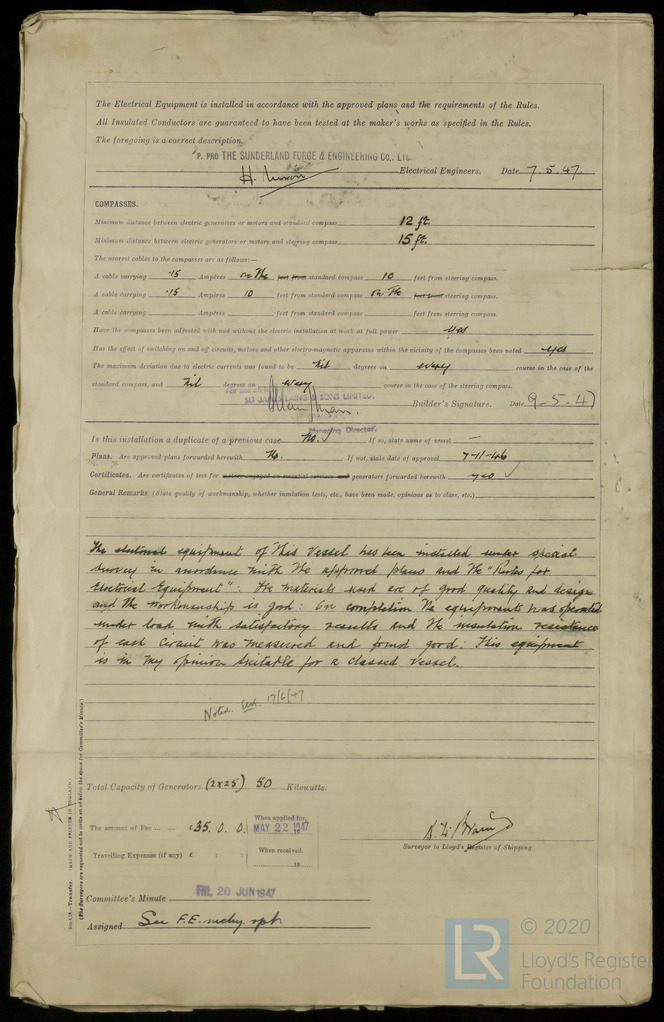 The Electrical Equipment is installed in accordance with the approved plans and the requirements of the Rules.
All Insulated Conductors are guaranteed to have been tested at the maker's works as specified in the Rules.
The foregoing is a correct description.
P. PRO THE SUNDERLAND FORGE & ENGINEERING CO., LTD.
H. Electrical Engineers. Date 7.5.47.
COMPASSES.
Minimum distance between electric generators or motors and standard compass 12 ft.
Minimum distance between electric generators or motors and steering compass 15 ft.
The nearest cables to the compasses are as follows:—
A cable carrying .15 Ampères on the feet from standard compass 10 feet from steering compass.
A cable carrying .15 Ampères 10 feet from standard compass on the feet from steering compass.
A cable carrying Ampères feet from standard compass feet from steering compass.
Have the compasses been adjusted with and without the electric installation at work at full power yes
Has the effect of switching on and off circuits, motors and other electro-magnetic apparatus within the vicinity of the compasses been noted yes
The maximum deviation due to electric currents was found to be Nil degrees on every course in the case of the
standard compass, and Nil degrees on every course in the case of the steering compass.
For and on behalf of
SIR JAMES LAING & SONS LIMITED.
Builder's Signature. Date 9-5-47
Managing Director.
Is this installation a duplicate of a previous case No. If so, state name of vessel —
Plans. Are approved plans forwarded herewith No. If not, state date of approval 7-11-46
Certificates. Are certificates of test for motors engaged on essential services and generators forwarded herewith yes
General Remarks (State quality of workmanship, whether insulation tests, etc., have been made, opinions as to class, etc.)
The electrical equipment of this vessel has been installed under special
survey in accordance with the approved plans and the "Rules for
Electrical Equipment": The materials used are of good quality and design
and the workmanship is good: On completion the equipment was operated
under load with satisfactory results and the insulation resistance
of each circuit was measured and found good: This equipment
is in my opinion suitable for a classed vessel.
Noted 17/6/47
Total Capacity of Generators (2x25) 50 Kilowatts.
The amount of Fee £35. 0. 0. When applied for, MAY 22 1947
Travelling Expenses (if any) £ : : When received, 19
Surveyor to Lloyd's Register of Shipping
Committee's Minute FRI. 20 JUN 1947
Assigned See F.E. mchy. rpt.
Transfer. (MADE AND PRINTED IN ENGLAND.)
(The Surveyors are requested not to write on or below the space for Committee's Minute.)
LR © 2020
Lloyd's Register
Foundation